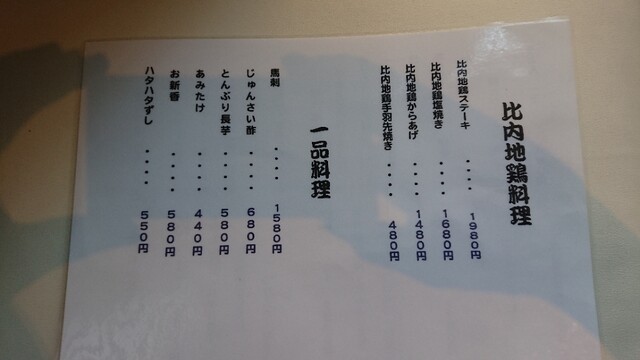 比内地鶏料理
比内地鶏ステーキ ・・・・ 1980円
比内地鶏塩焼き ・・・・ 1680円
比内地鶏からあげ ・・・・ 1480円
比内地鶏手羽先焼き ・・・・ 480円
一品料理
馬刺 ・・・・ 1580円
じゅんさい酢 ・・・・ 680円
とんぶり長芋 ・・・・ 580円
あみたけ ・・・・ 440円
お新香 ・・・・ 580円
ハタハタずし ・・・・ 550円